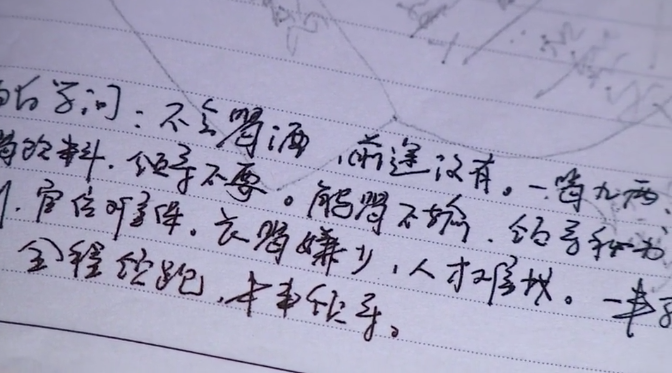 的学问：不会喝酒，前途没有。一喝九两，
饮料，领导不要。能喝不输，领导秘书
官位难保。长喝嫌少，人才难找。一半
全程领跑，未来领导。